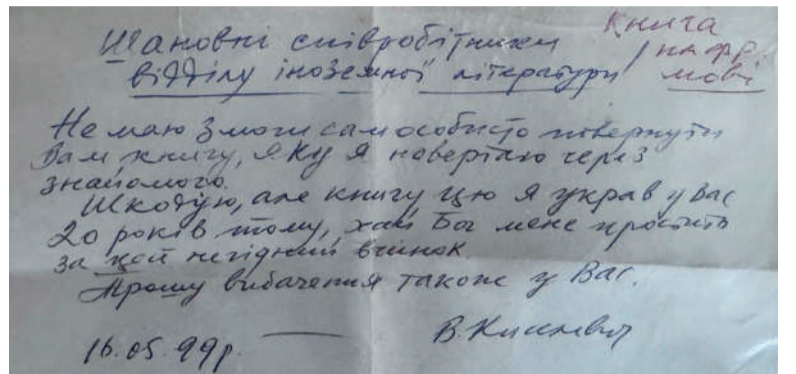 Шановні співробітники
відділу іноземної літератури
Книга
на фр.
мові
Не маю змоги сам особисто повернути
Вам книгу, яку я повертаю через
знайомого.
Шкодую, але книгу цю я украв у Вас
20 років тому, хай Бог мене простить
за цей негідний вчинок.
Прошу вибачення також у Вас.
16.05.99р.
В.